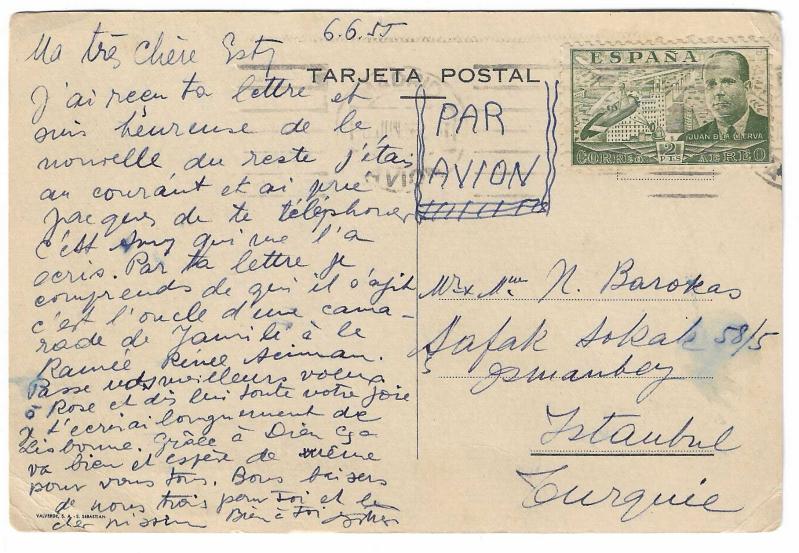 6.6.55
Ma très chère Esty
TARJETA POSTAL
J'ai reçu ta lettre et
suis heureuse de la
nouvelle du reste j'étais
au courant et ai prié
Jacques de te téléphoner
c'est qui me l'a
ecris. Par ta lettre je
comprends de qui il s'agit
c'est l'oncle d'une cama-
rade de à le
Ramée Rénée
Passe nos meilleurs voeux
à Rose et dis lui toute votre joie
je t'ecriai longuement de
Lisbonne. Grâce à Dieu ça
va bien et espère de même
pour vous tous. Bons baisers
de nous trois pour toi et le
cher nissim Bien à toi
PAR
AVION
ESPAÑA
JUAN DE LA CIERVA
CORREO 2 PTS AEREO
Mr x Mme N. Barokas
Şafak Sokak 58/5
Osmanbey
Istanbul
Turquie
VALVERDE, S. A. - S. SEBASTIAN